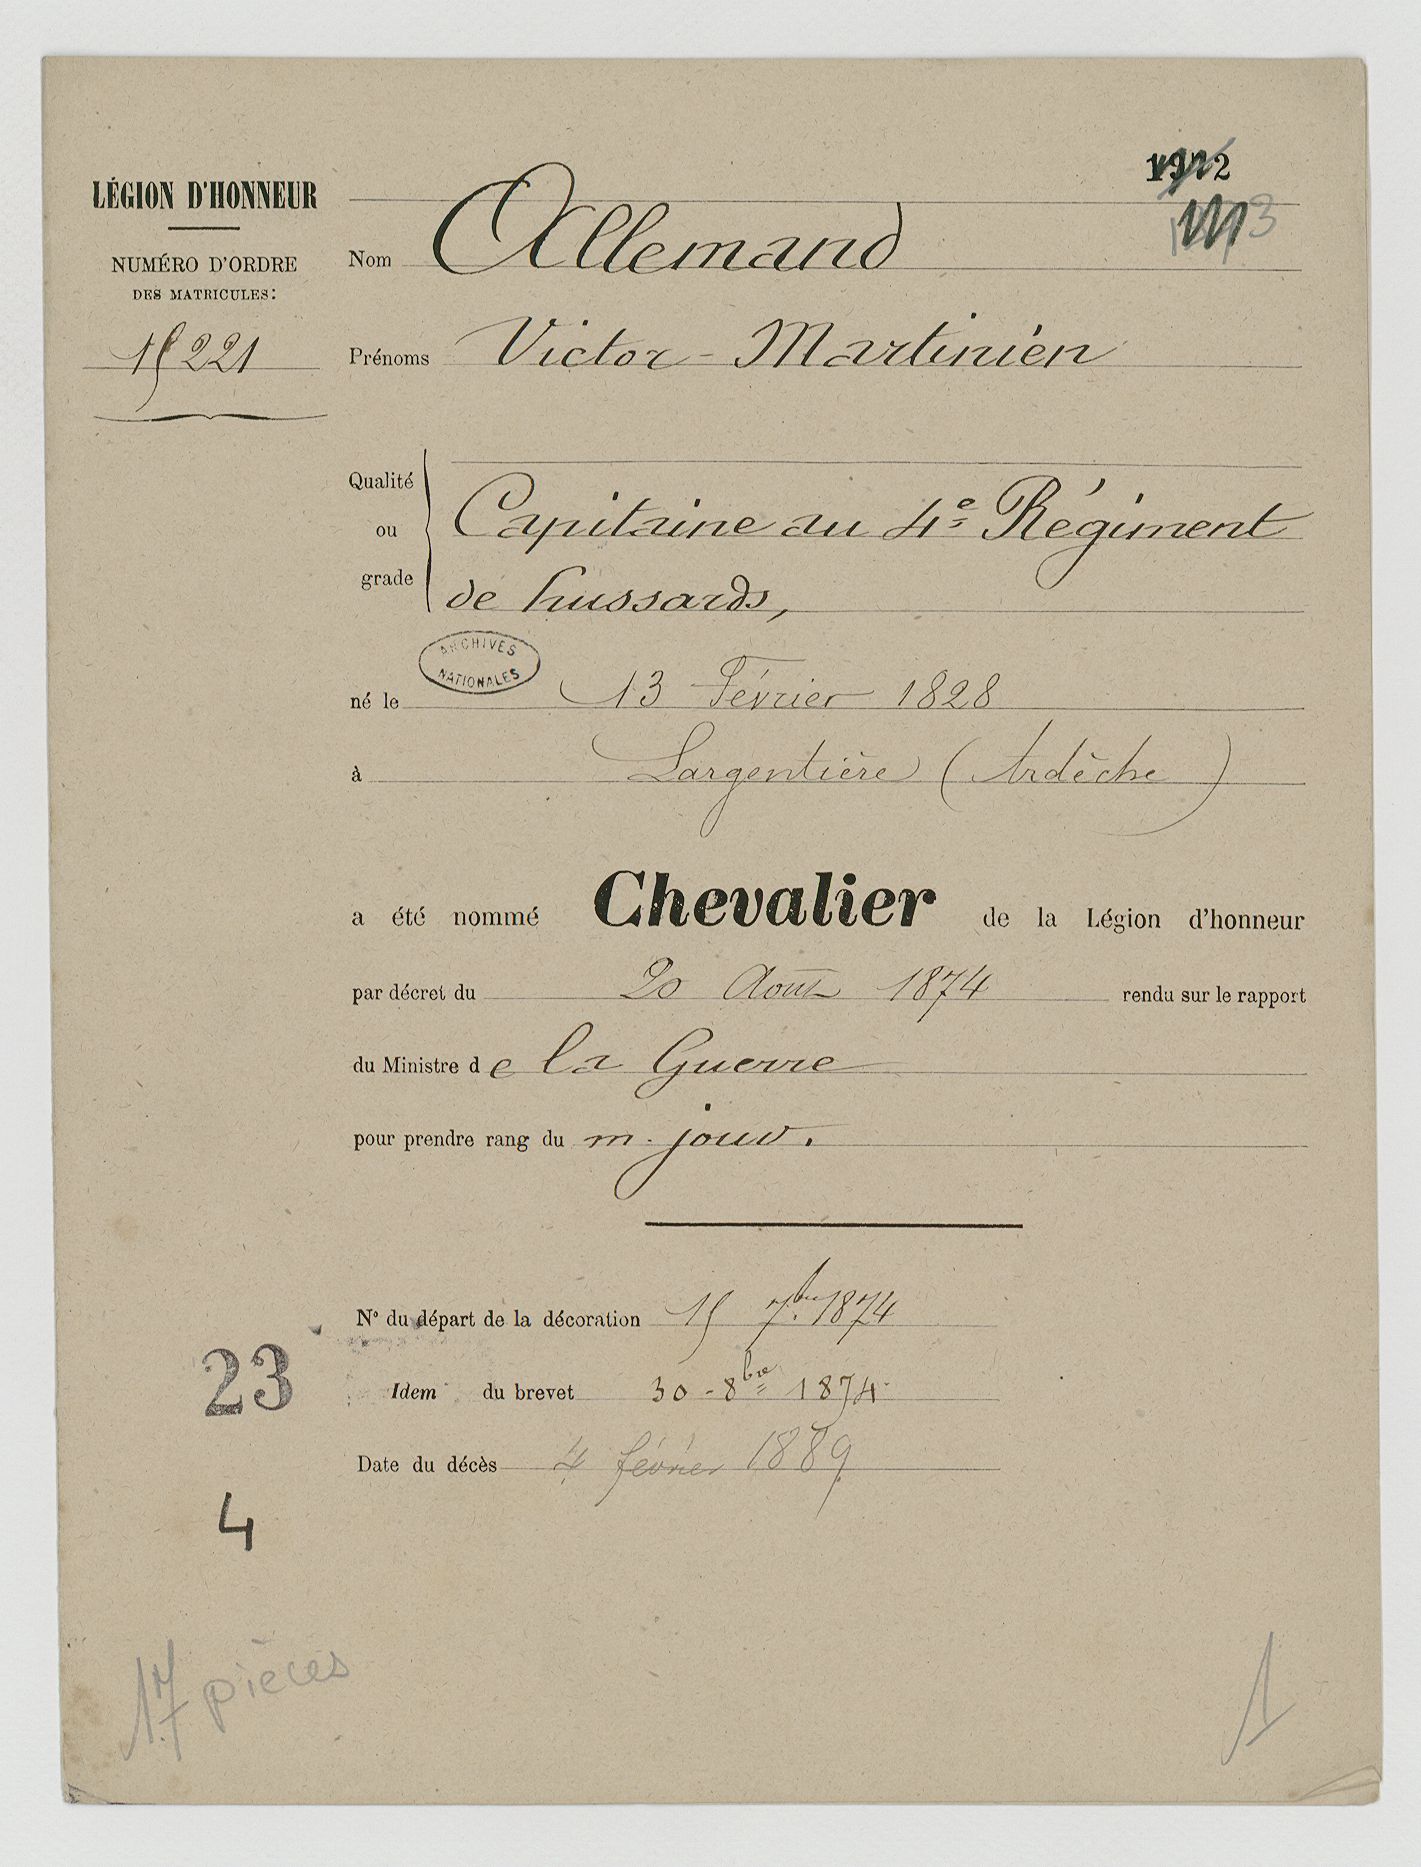 LÉGION D'HONNEUR
NUMÉRO D'ORDRE
DES MATRICULES:
15221
Nom Allemand
Prénoms Victor-Martinién
Qualité
ou
grade
Capitaine au 4e Régiment
de hussards,
ARCHIVES
NATIONALES
né le 13 Février 1828
à Largentière (Ardèche)
a été nommé Chevalier de la Légion d'honneur
par décret du 20 Août 1874 rendu sur le rapport
du Ministre de la Guerre
pour prendre rang du m. jour.
N° du départ de la décoration 15 7bre 1874
Idem du brevet 30-8bre 1874
Date du décès 4 février 1889
23
4
17 pièces
1